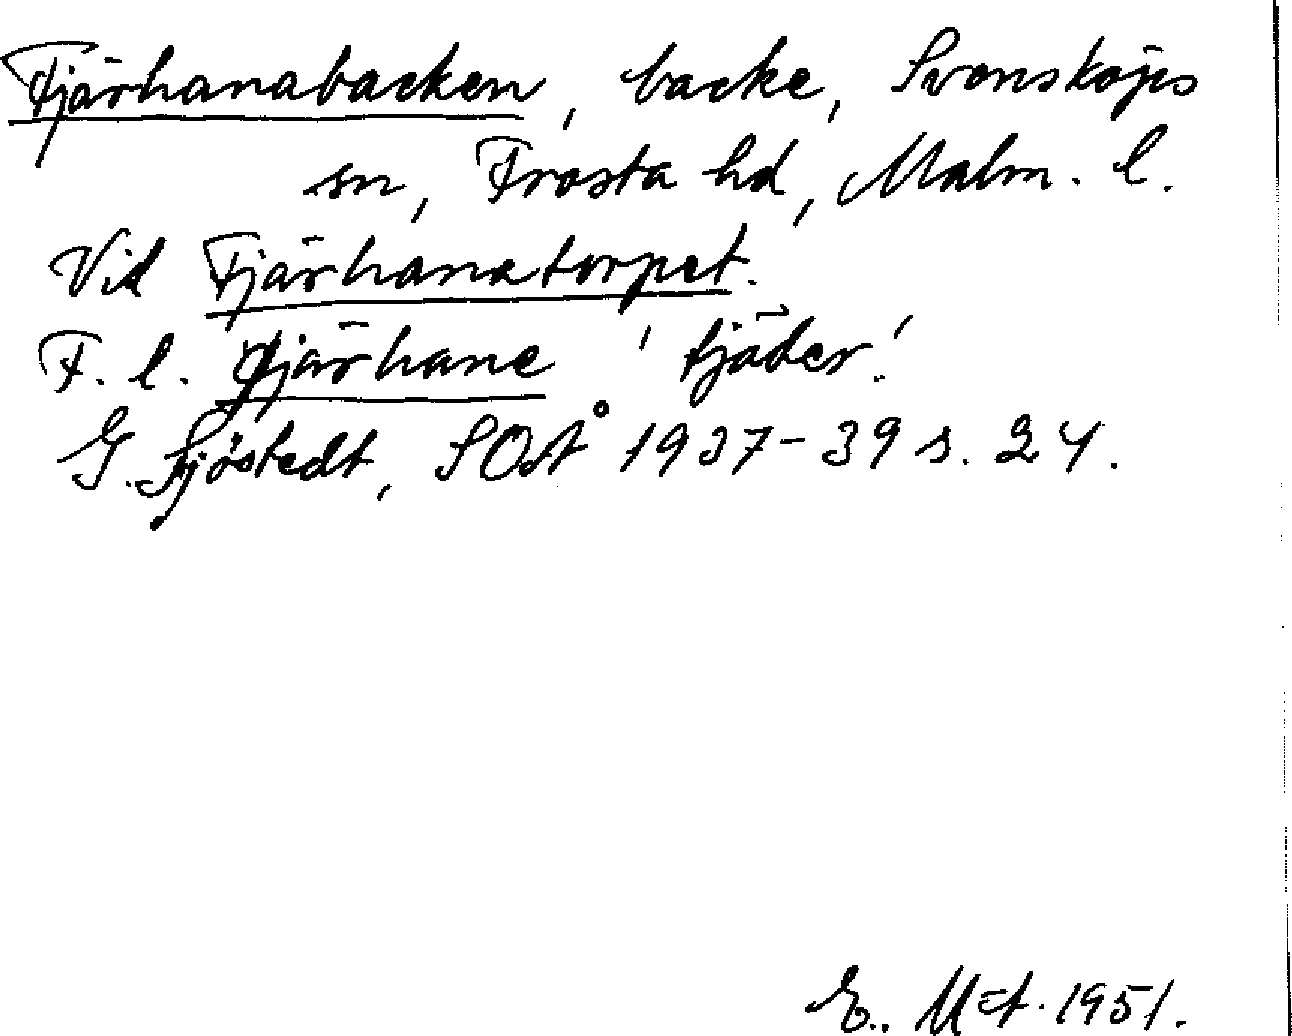 Fjärhanabacken, backe, Svensköps
sn, Frosta hd, Malm. l.
Vid Fjärhanatorpet.
F. l. fjärhane 'tjäder'.
G. Sjöstedt, SOÅ 1937-39 s. 24.
1951.